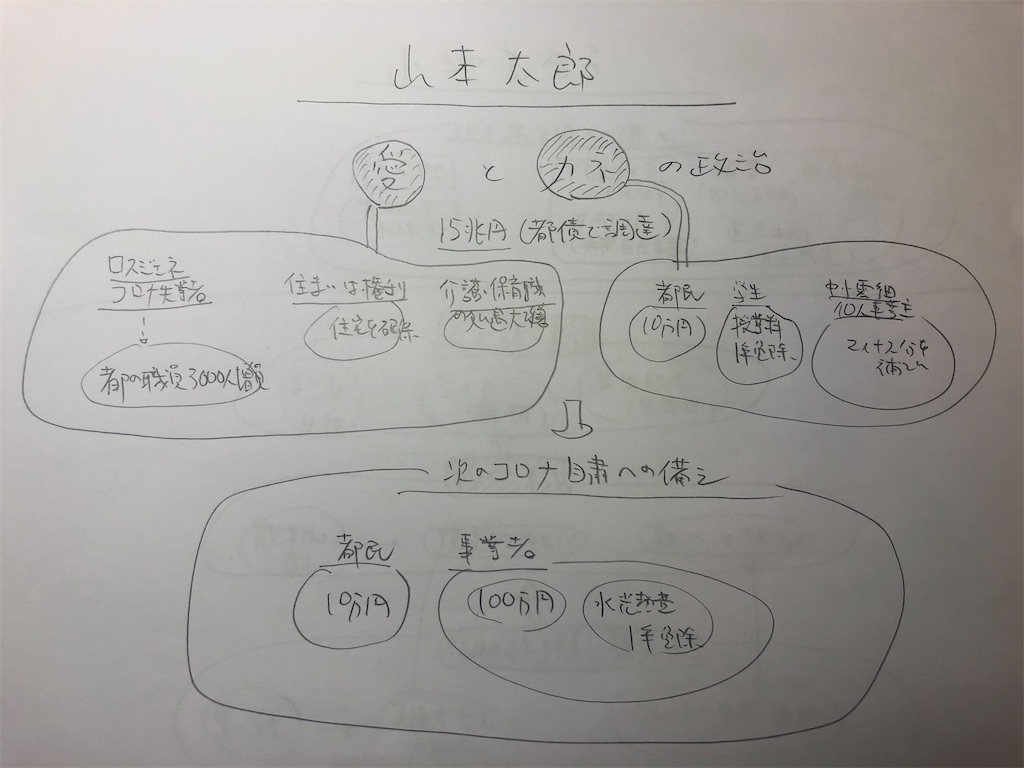 山本太郎
愛 と カネ の政治
15兆円(都債で調達)
ロスジェネ
コロナ失業者
都の職員3000人増員
住まいは権利
住宅を確保
介護・保育職
の処遇大改善
都民
10万円
学生
授業料
1年免除
中小零細
個人事業主
マイナス分を
補てん
次のコロナ自粛への備え
都民
10万円
事業者
100万円
水光熱費
1年免除